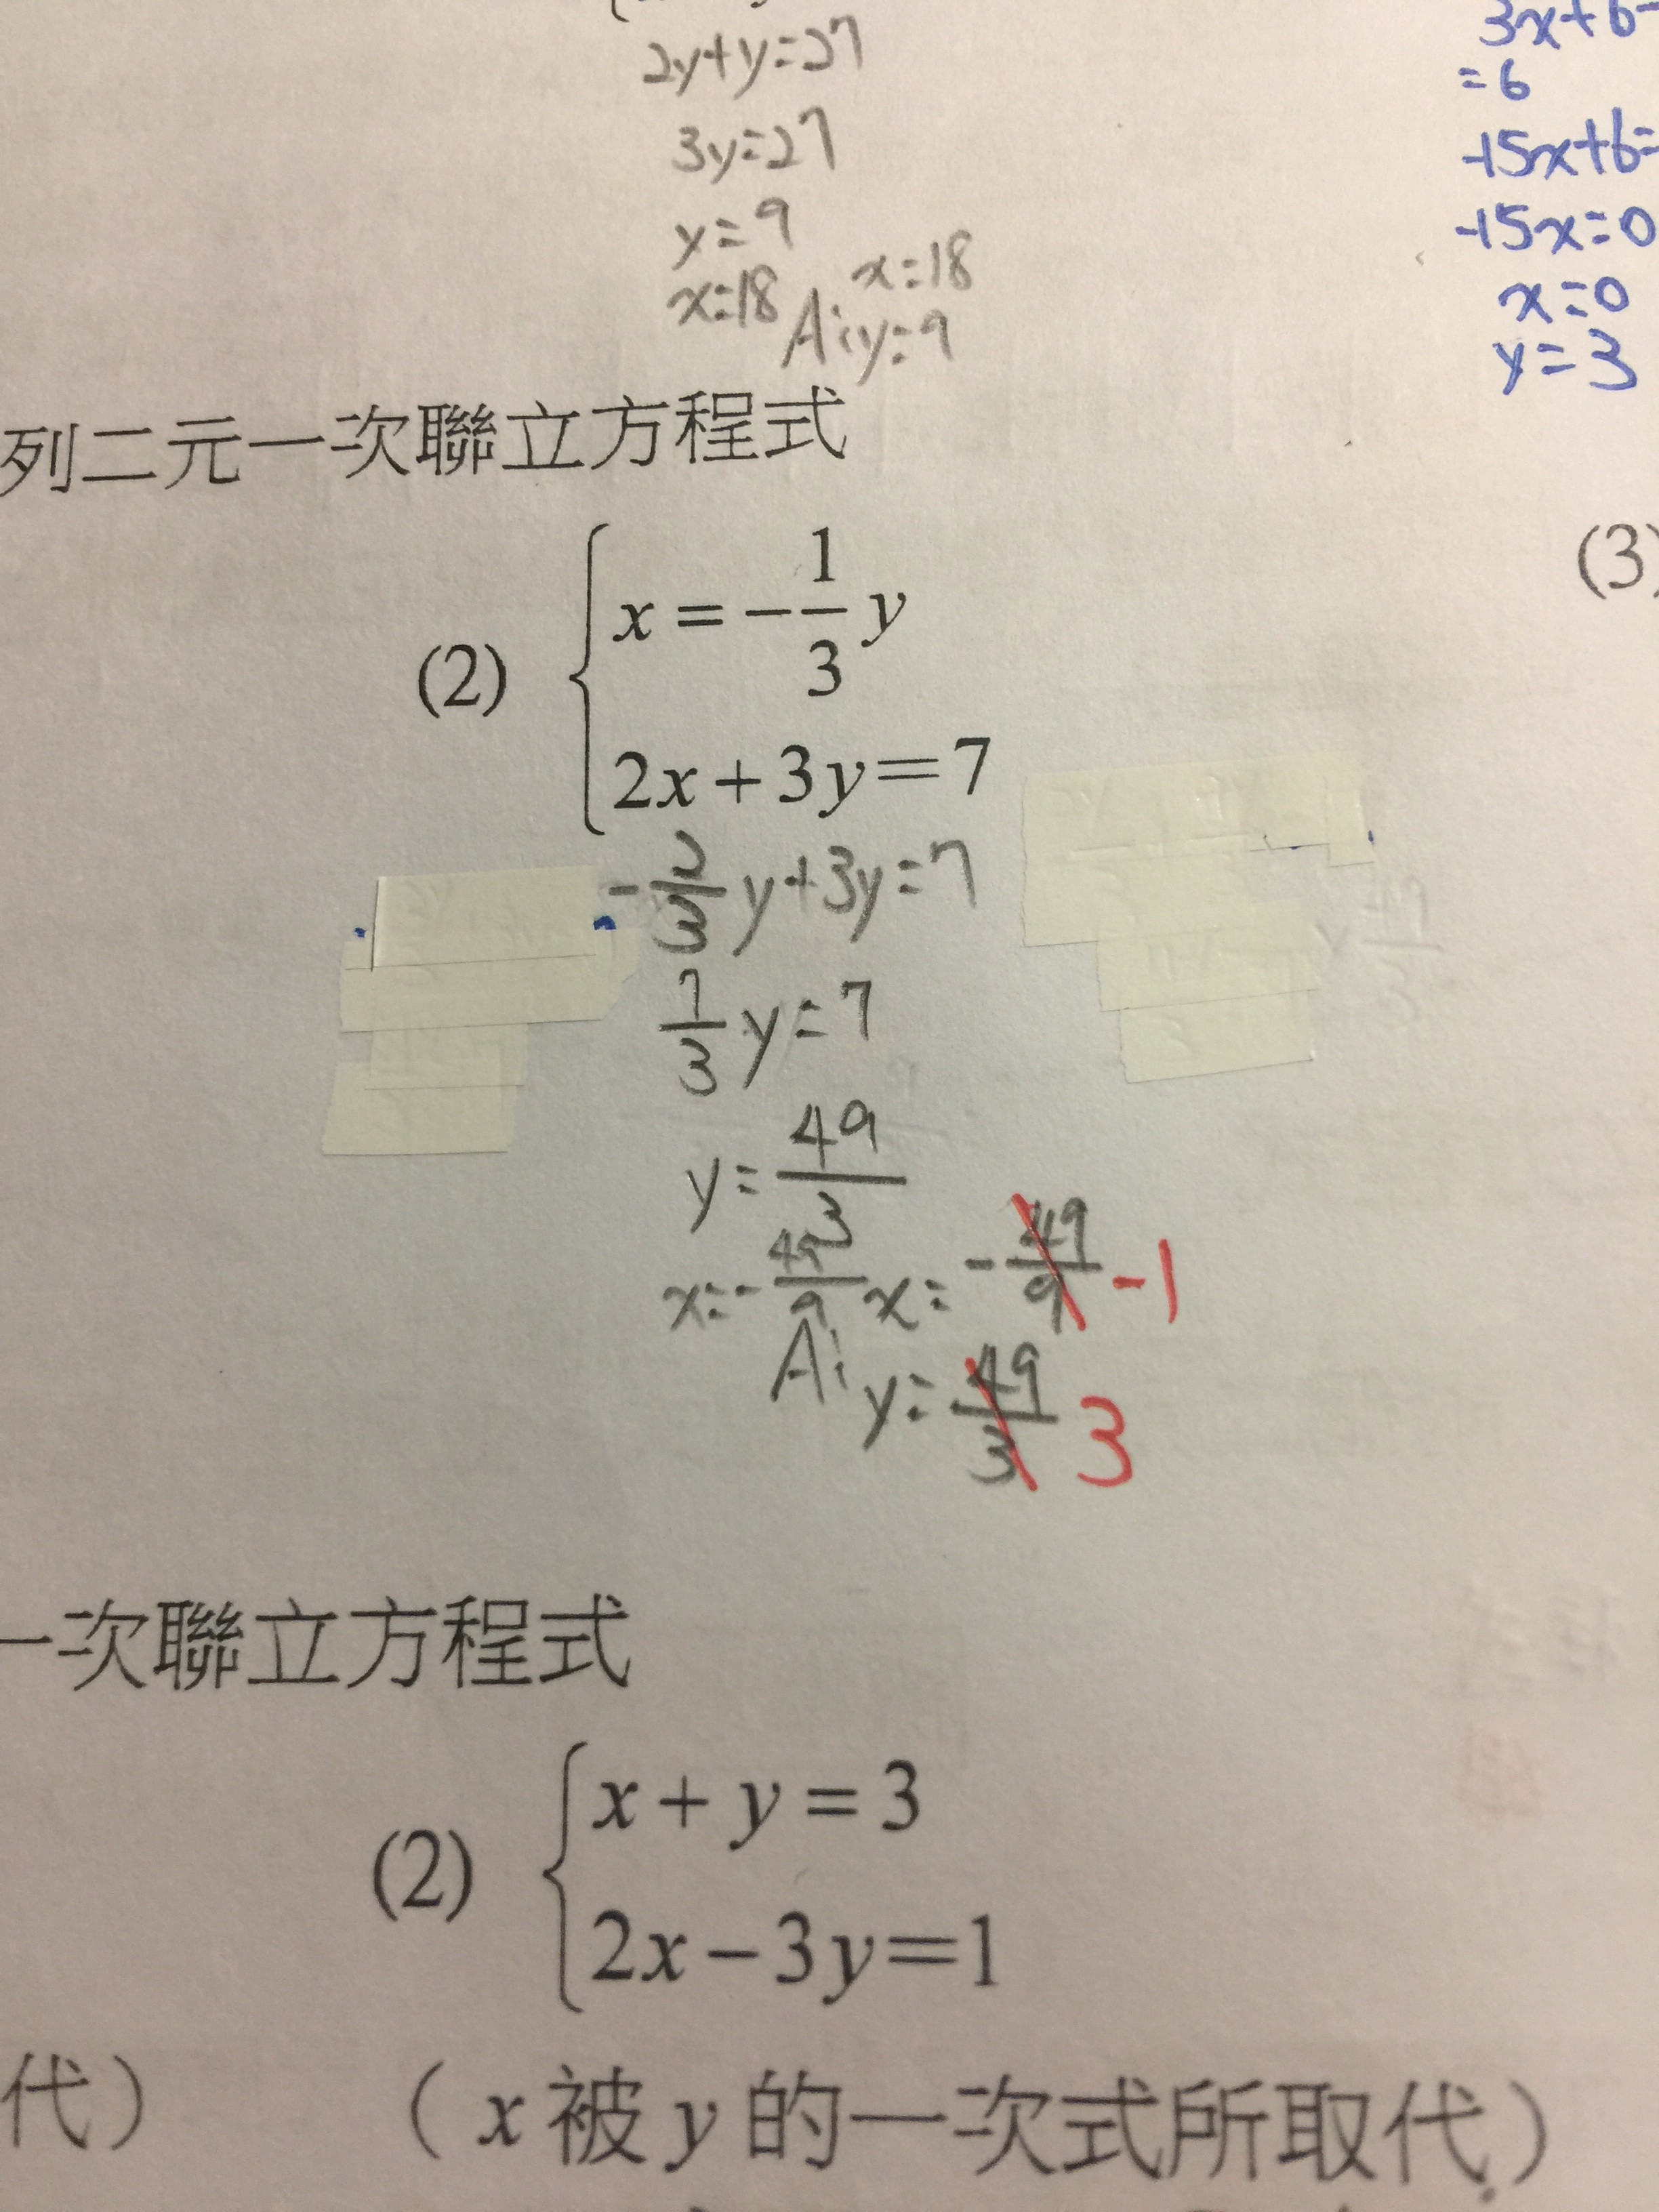 2y+y=27
3y=27
y=9
x=18
A: x=18
y=9
3x+6-
=6
-15x+6=
-15x=0
x=0
y=3
列二元一次聯立方程式
(2) { x = -1/3 y
2x+3y=7
(3)
-2/3 y+3y=7
7/3 y=7
y=49/3
x=-49/9
A: x=-49/9 -1
y=49/3 3
一次聯立方程式
(2) { x+y=3
2x-3y=1
代)
(x被y的一次式所取代)